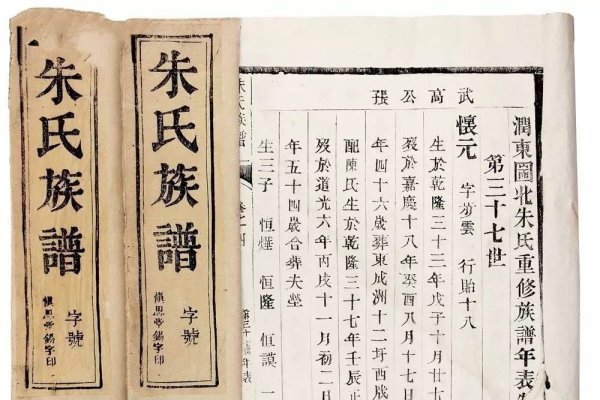 潤東圌北朱氏重修族譜年表
第三十七世
武高公張
懷元 字芳雲 行貽十八
生於乾隆三十三年戊子十月廿
歿於嘉慶十八年癸酉八月十七日
年四十六歲葬東成洲十二圩酉
配陳氏生於乾隆三十七年壬辰正
歿於道光六年丙戌十一月初二日
年五十四歲合葬夫塋
生三子 恒燁 恒隆 恒謨 一
朱氏族譜 卷之四
朱氏族譜
字號
慎思堂錫字印
朱氏族譜
字號
慎思堂錫字印